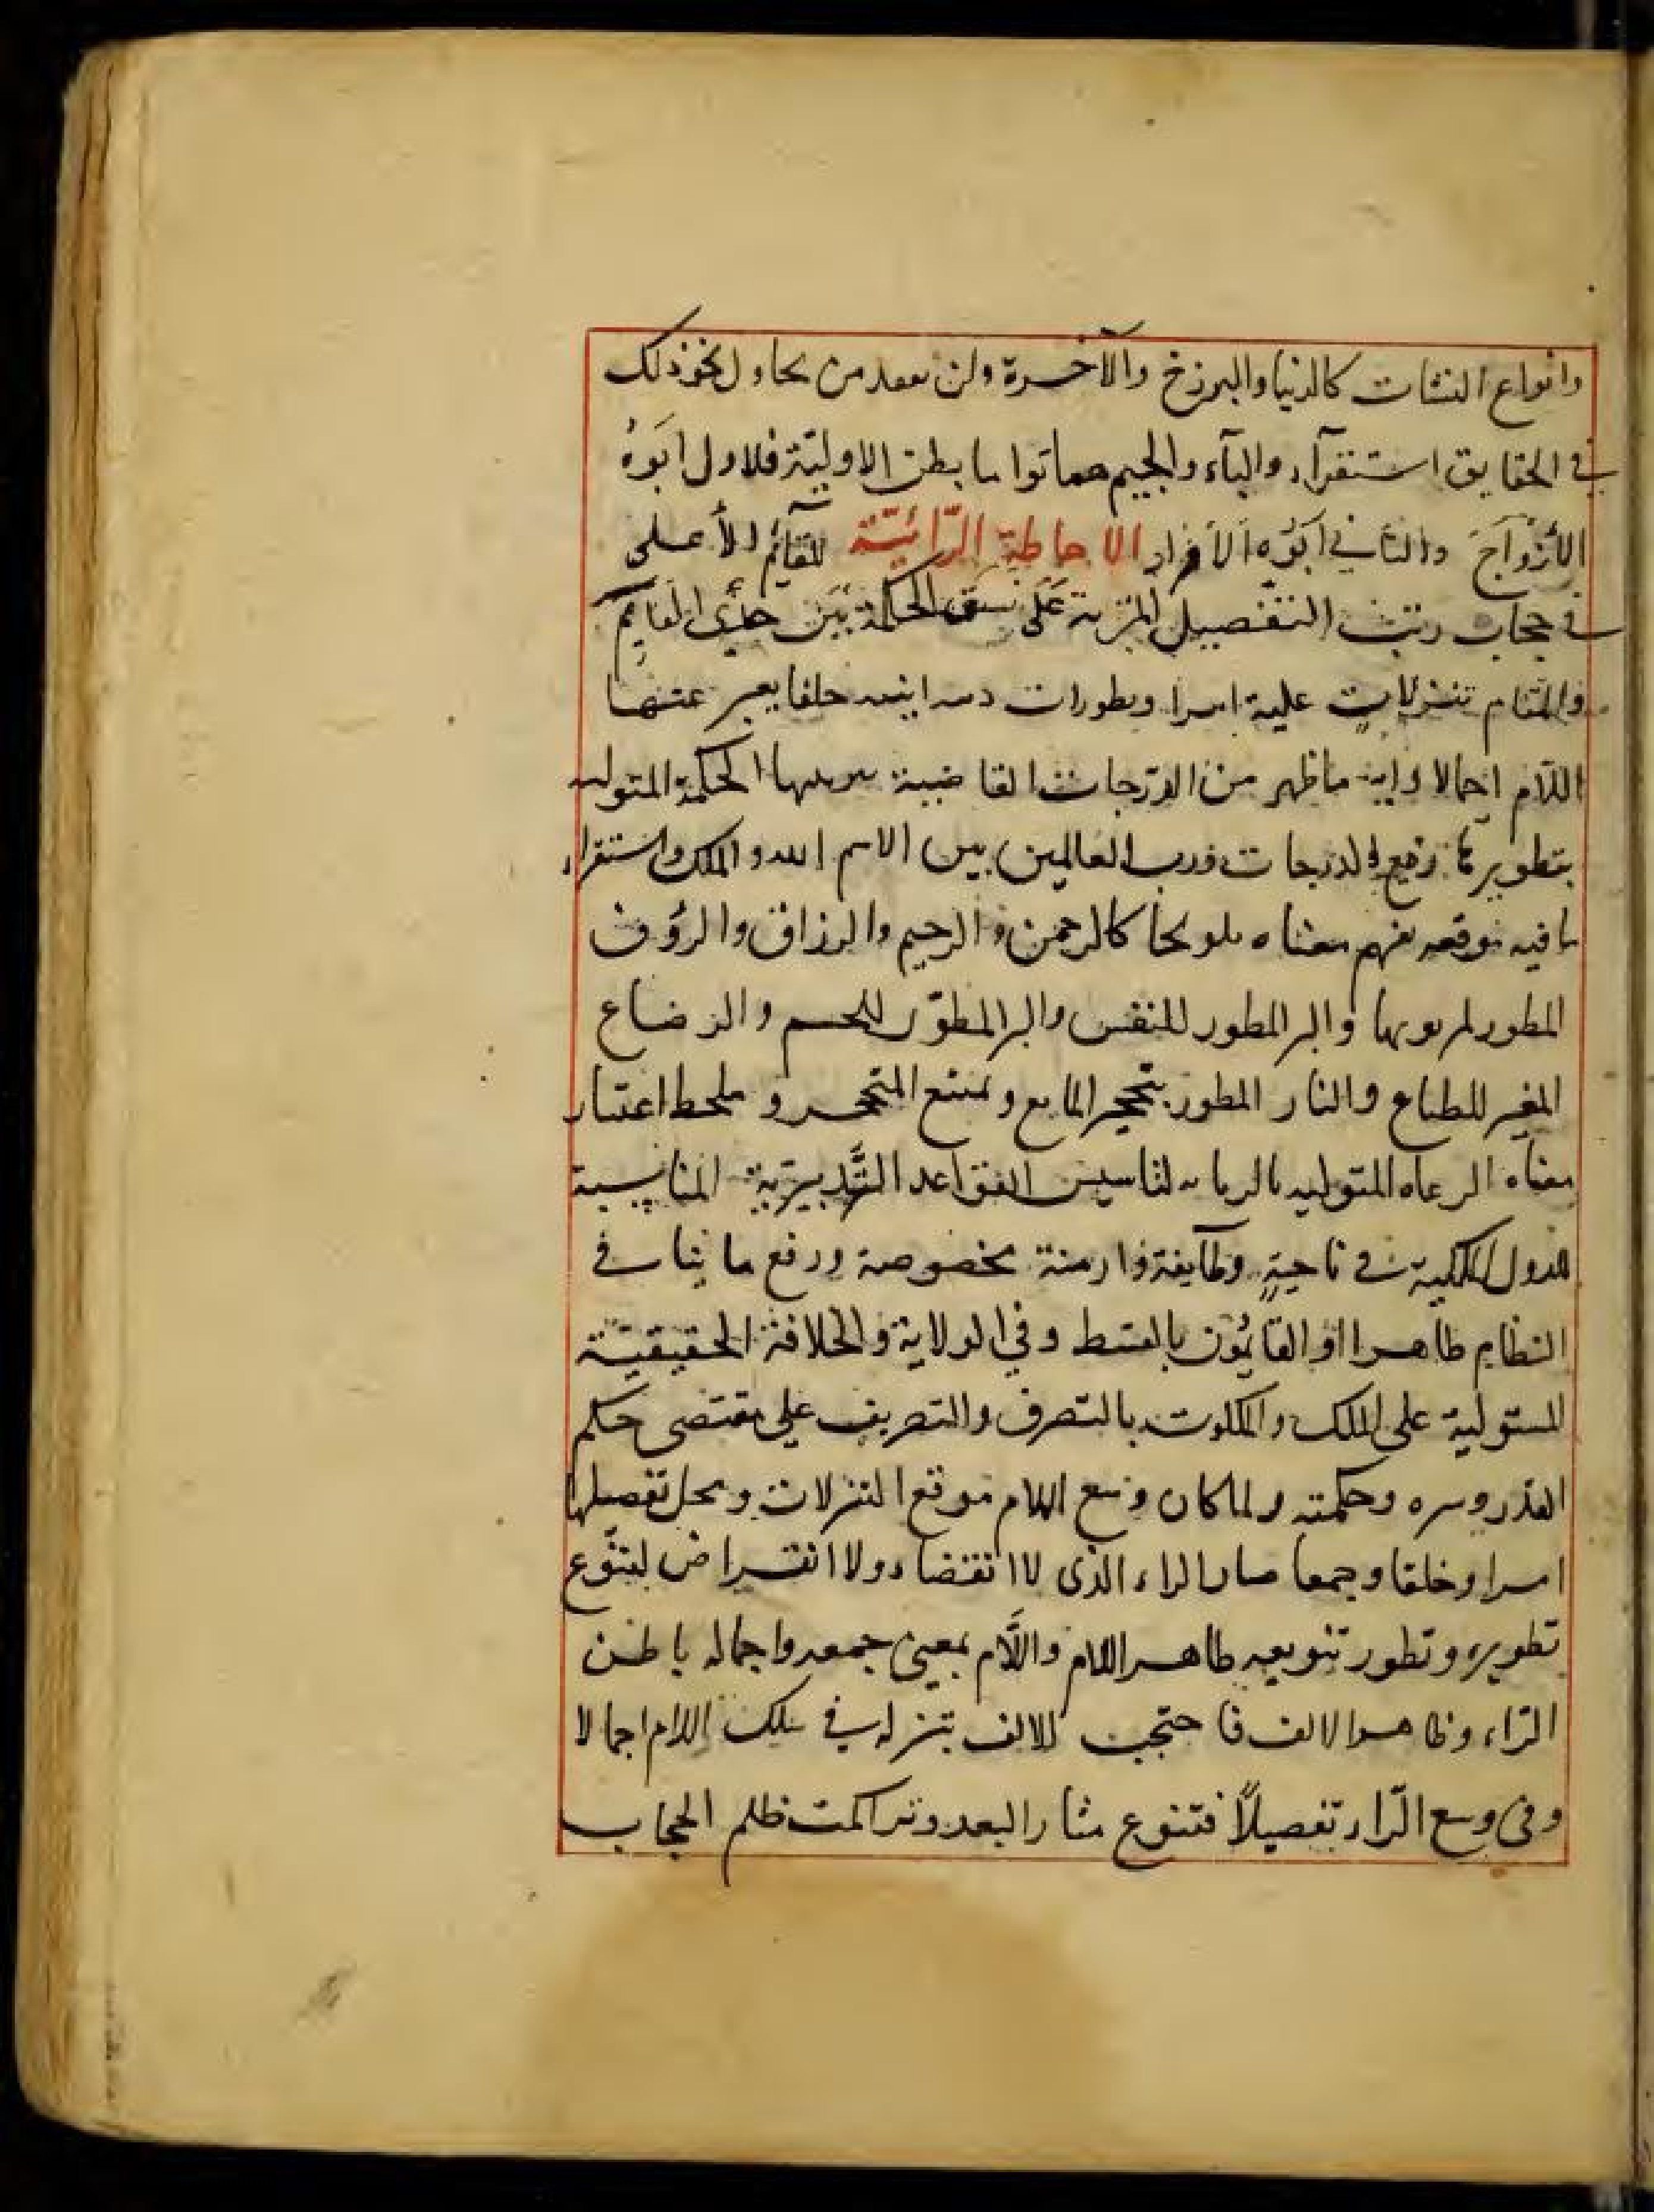 وانواع النشات كالدنيا والبرزخ والآخرة ولن يفقد من يحاول نحو ذلك
في الحقايق استقرآء والبآء والجيم هما توا ما بطن الاوليّة فلاول ابَوهُ
الأزواجَ والثاني ابَوّه الأفراد الاحاطة الرّائيّة للقآئم الأعلى
في حجاب رتب التفصيل المترتبة عَلى نسق الحكمة بَين حدّى القايم
والمقام تنزلات علية امرا وتطورات خلقا يعبر عنها
اللام اجمالا واية ما ظهر من الدّرجات القاضية الحكمة المتوليه
بتطويرها رفيع الدرجات ورب العالمين بين الاسم الله والملك واستقراء
ما فيه موقعه يفهم معناه تلويحا كالرحمن والرحيم والرزاق والرؤف
المطور لمربوبها والبر المطور للنفس والبر المطوّر للجسم والرضاع
المغير للطباع والنار المطور بتحجير المايع وتميّع المتحجر و ملحظ اعتبار
معناه الرعاه المتوليه لتاسيس القواعد التَّدبيريّة المناسبة
للدول الملكية في ناحيةٍ وطآيفة وازمنة مخصوصة ورفع ما ينافي
النظام ظاهرا او القايمُون بالقسط وفي الولاية والخلافة الحقيقيّة
المستولية على الملك والملكوت بالتصرف والتصريف على مقتضى حكم
القدر وسره وحكمته ولما كان وسع اللام موقع التنزلات ومحل تفصيلها
امرا وخلقا وجمعا صار الراء الذى لا انقضاء ولا انقراض لتنوّع
تطويره وتطور تنويعه ظاهر اللام واللَّام بمعنى جمعه واجماله باطن
الرّاء وظاهر الالف فاحتجبت الالف بتنزله في ملك اللام اجمالا
وفي وسع الرّاء تفصيلاً فتنوع مثار البعد وتراكمت ظلم الحجاب